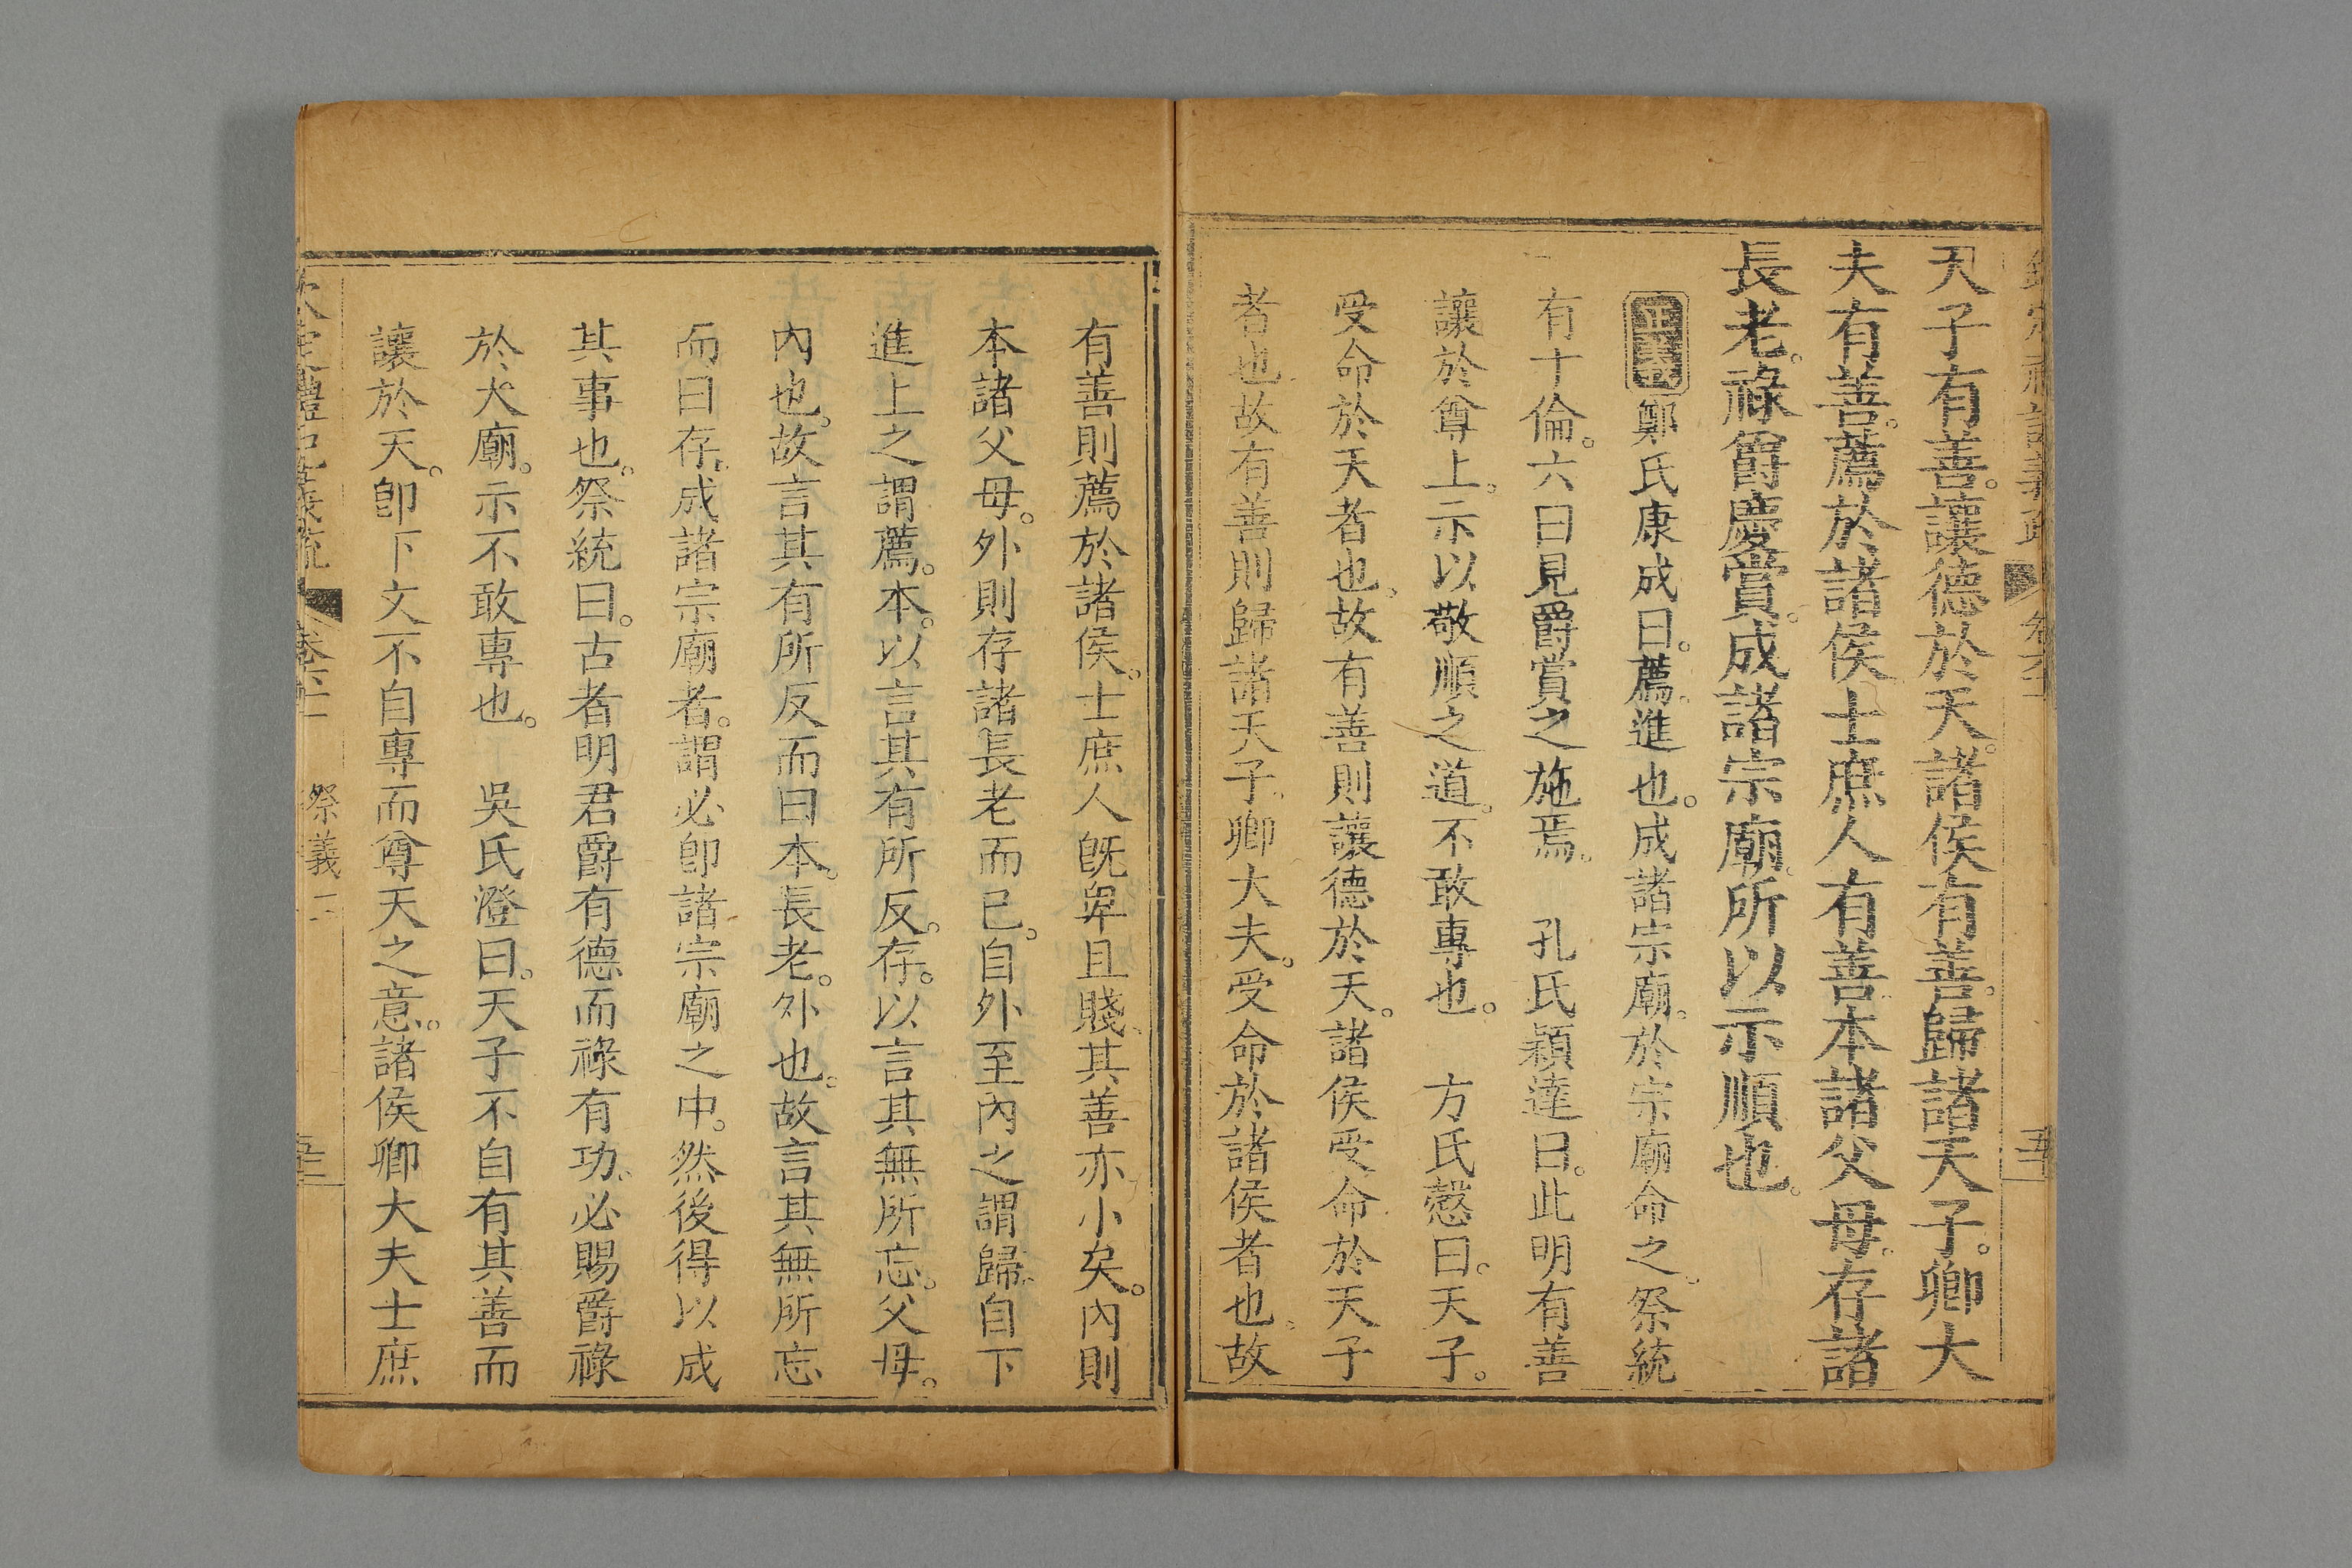 天子有善。讓德於天。諸侯有善。歸諸天子。卿大
夫有善。薦於諸侯。士庶人有善。本諸父母。存諸
長老。祿爵慶賞。成諸宗廟。所以示順也。
正義鄭氏康成曰。薦。進也。成諸宗廟。於宗廟命之。祭統
有十倫。六曰見爵賞之施焉。 孔氏穎達曰。此明有善
讓於尊上。示以敬順之道。不敢專也。 方氏慤曰。天子。
受命於天者也。故有善則讓德於天。諸侯受命於天子
者也。故有善則歸諸天子。卿大夫。受命於諸侯者也。故
有善則薦於諸侯。士庶人旣卑且賤。其善亦小矣。內則
本諸父母。外則存諸長老而已。自外至內之謂歸。自下
進上之謂薦。本。以言其有所反。存。以言其無所忘。父母。
內也。故言其有所反而曰本。長老。外也。故言其無所忘
而曰存。成諸宗廟者。謂必卽諸宗廟之中。然後得以成
其事也。祭統曰。古者明君爵有德而祿有功。必賜爵祿
於大廟。示不敢專也。 吳氏澄曰。天子不自有其善而
讓於天。卽下文不自專而尊天之意。諸侯卿大夫士庶
欽定禮記義疏 卷六十二 祭義二